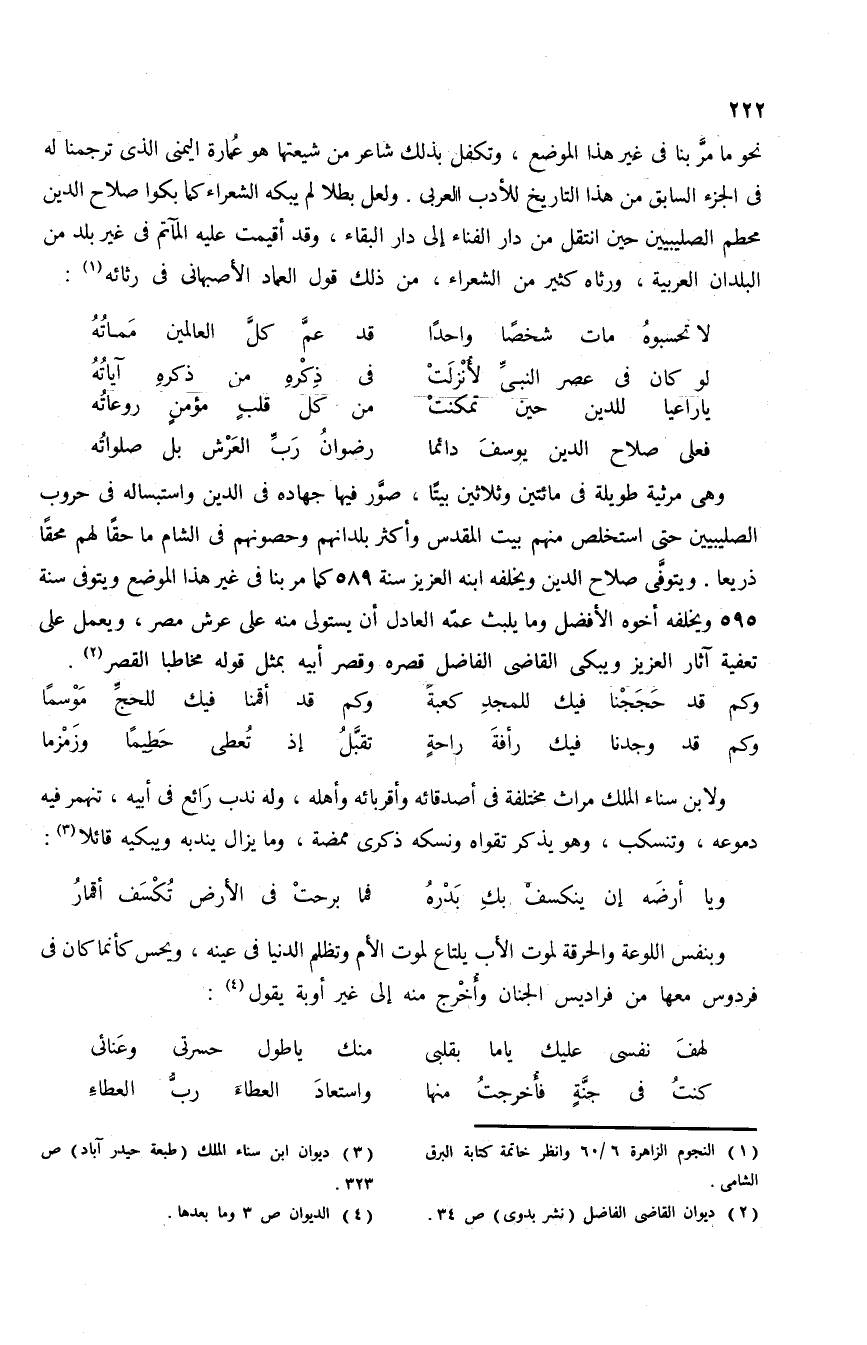 ٢٢٢
نحو ما مرَّ بنا فى غير هذا الموضع ، وتكفل بذلك شاعر من شيعتها هو عُمارة اليمنى الذى ترجمنا له
فى الجزء السابق من هذا التاريخ للأدب العربى . ولعل بطلا لم يبكه الشعراء كما بكوا صلاح الدين
محطم الصليبيين حين انتقل من دار الفناء إلى دار البقاء ، وقد أقيمت عليه المآتم فى غير بلد من
البلدان العربية ، ورثاه كثير من الشعراء ، من ذلك قول العماد الأصبهانى فى رثائه(١) :
لا تحسبوهُ مات شخصًا واحدًا قد عمَّ كلَّ العالمين مَماتُهُ
لو كان فى عصر النبىِّ لأُنْزلَتْ فى ذِكْرهِ من ذكرهِ آياتُهُ
ياراعيا للدين حين تمكنتْ من كل قلبٍ مؤمنٍ روعاتُه
فعلى صلاح الدين يوسفَ دائما رضوانُ رَبِّ العَرْش بل صلواتُه
وهى مرثية طويلة فى مائتين وثلاثين بيتًا ، صوَّر فيها جهاده فى الدين واستبساله فى حروب
الصليبيين حتى استخلص منهم بيت المقدس وأكثر بلدانهم وحصونهم فى الشام ما حقًا لهم محقًا
ذريعا . ويتوفَّى صلاح الدين ويخلفه ابنه العزيز سنة ٥٨٩ كما مر بنا فى غير هذا الموضع ويتوفى سنة
٥٩٥ ويخلفه أخوه الأفضل وما يلبث عمّه العادل أن يستولى منه على عرش مصر ، ويعمل على
تعفية آثار العزيز ويبكى القاضى الفاضل قصره وقصر أبيه بمثل قوله مخاطبا القصر(٢) .
وكم قد حَجَجْنا فيك للمجدِ كعبةً وكم قد أقمنا فيك للحجِّ مَوْسمًا
وكم قد وجدنا فيك رأفةَ راحةٍ تقبَّلُ إذ تُعطى حَطِيمًا وزَمْزما
ولابن سناء الملك مراث مختلفة فى أصدقائه وأقربائه وأهله ، وله ندب رَائع فى أبيه ، تنهمر فيه
دموعه ، وتنسكب ، وهو يذكر تقواه ونسكه ذكرى ممضة ، وما يزال يندبه ويبكيه قائلا(٣) :
ويا أرضَه إن ينكسفْ بكِ بَدْرهُ فما برحتْ فى الأرض تُكْسَف أقمارُ
وبنفس اللوعة والحرقة لموت الأب يلتاع لموت الأم وتظلم الدنيا فى عينه ، ويحس كأنما كان فى
فردوس معها من فراديس الجنان وأُخْرج منه إلى غير أوبة يقول(٤) :
لهفَ نفسى عليك ياما بقلبى منك ياطول حسرتى وعَنائى
كنتُ فى جنَّةٍ فأُخرجتُ منها واستعادَ العطاءَ ربُّ العطاءِ
(١) النجوم الزاهرة ٦٠/٦ وانظر خاتمة كتابة البرق
الشامى .
(٢) ديوان القاضى الفاضل (نشر بدوى) ص ٣٤.
(٣) ديوان ابن سناء الملك (طبعة حيدر آباد) ص
٣٢٣ .
(٤) الديوان ص ٣ وما بعدها .